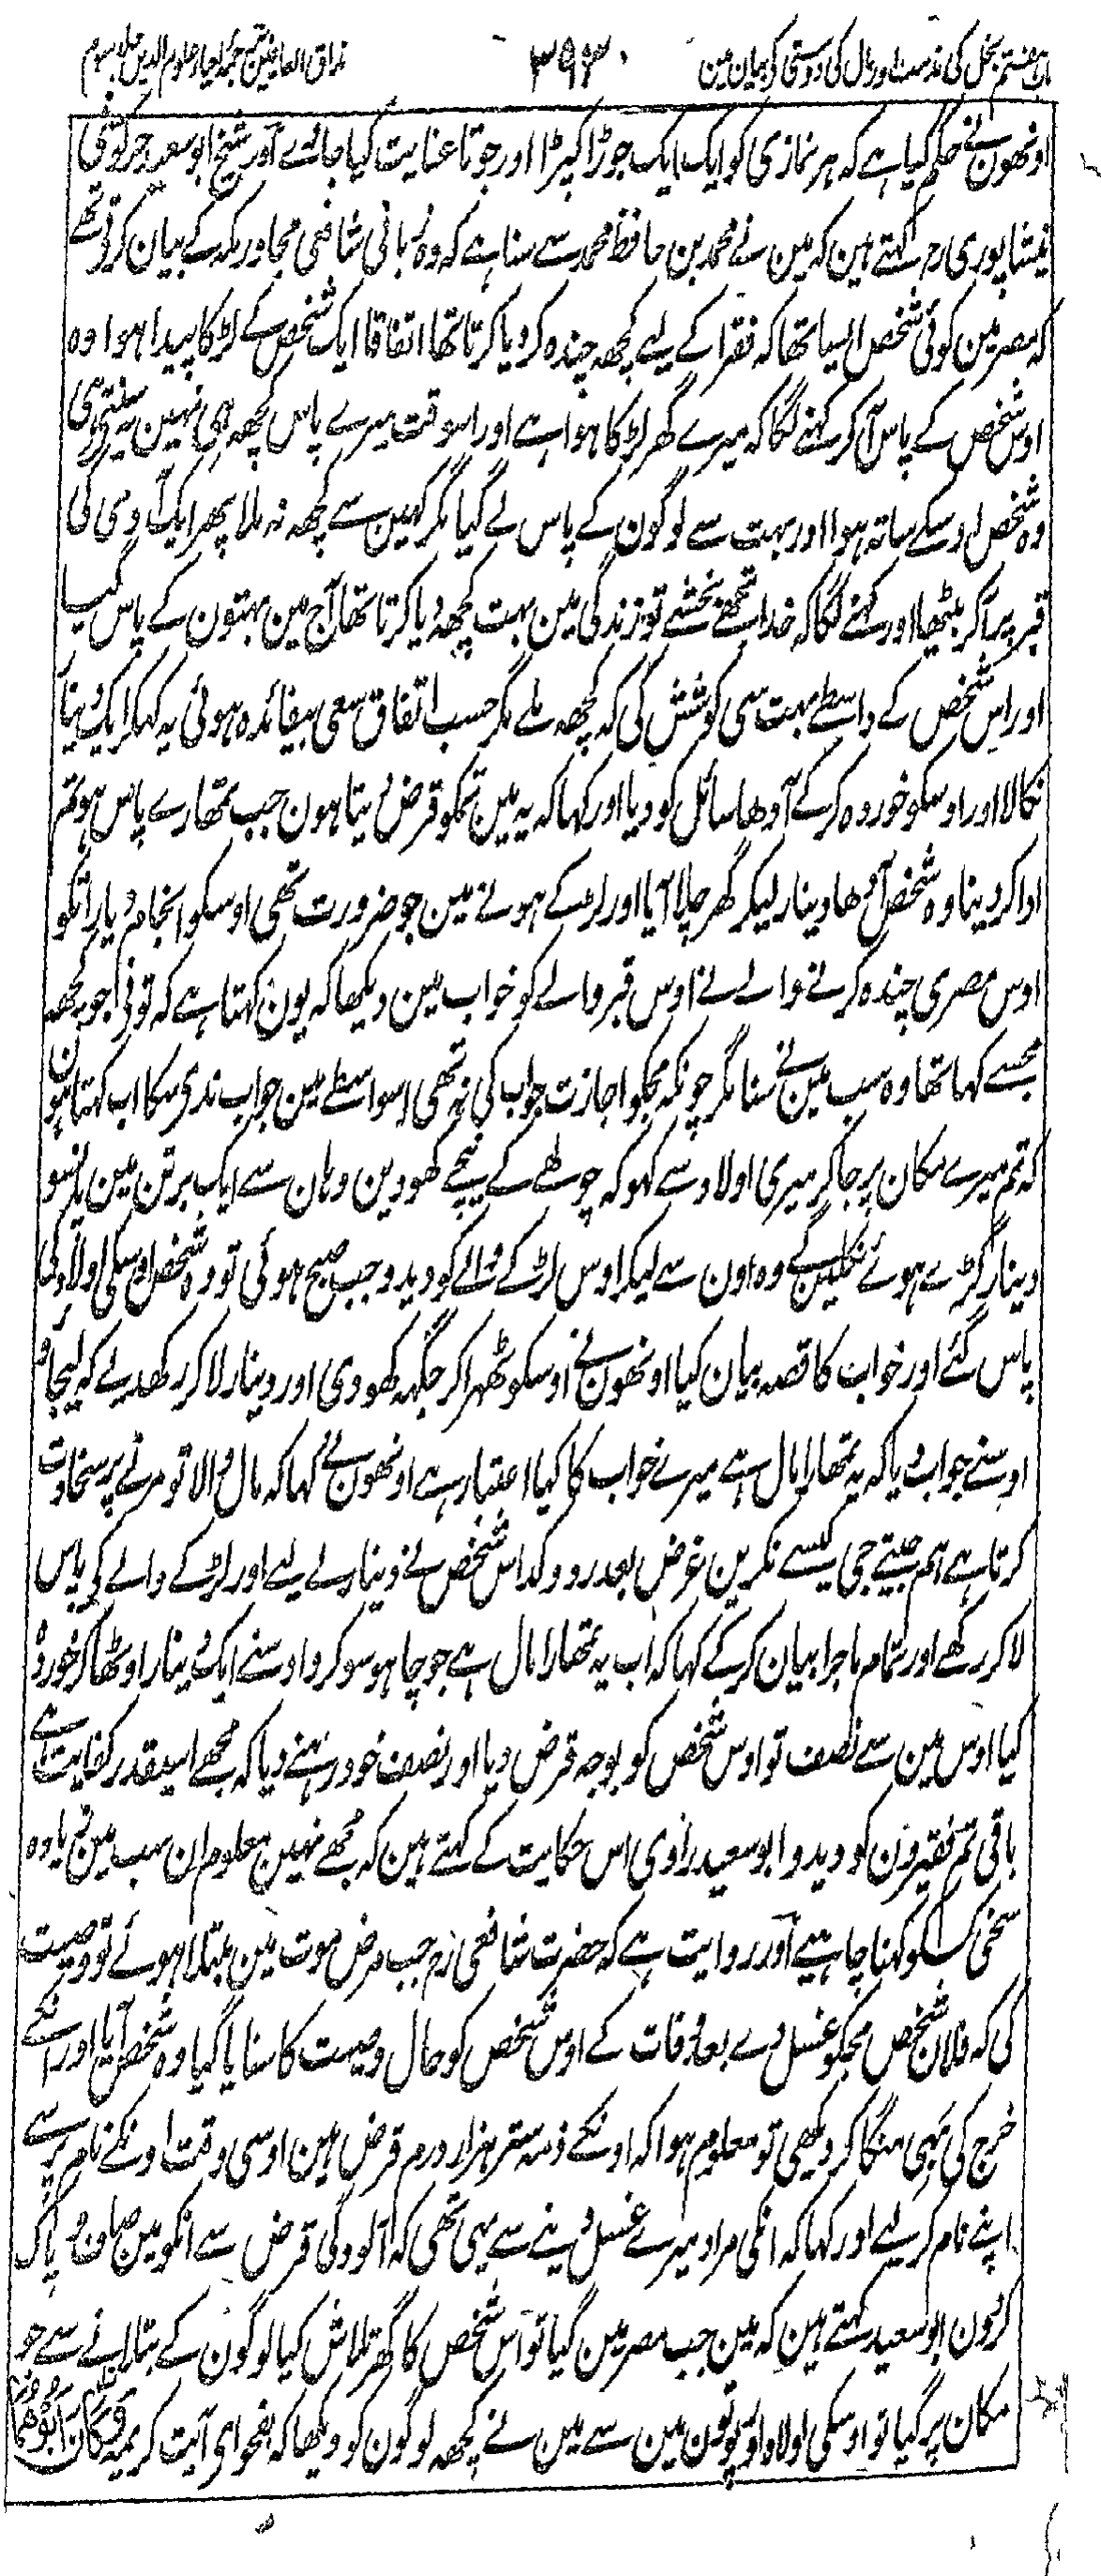 باب ہفتم بخل کی مذمت اور مال کی دوستی کو بیان مین ۳۹۳ مذاق العارفین ترجمہ احیاء علوم الدین جلد سوم
اونھون نے حکم کیا ہے کہ ہر نمازی کو ایک ایک جوڑا کپڑا اور جوتا عنایت کیا جائے اور شیخ ابو سعید خرکوشی
نیشاپوری رح کہتے ہین کہ مین نے محمد بن حافظ محمد سے سنا ہے کہ وہ زبانی شافعی مجاور مکہ کے بیان کرتے تھے
کہ مصر مین کوئی شخص ایسا تھا کہ فقرا کے لیے کچھ چندہ کر دیا کرتا تھا اتفاقا ایک شخص کے لڑکا پیدا ہوا وہ
اوس شخص کے پاس آ کر کہنے لگا کہ میرے گھر لڑکا ہوا ہے اور اسوقت میرے پاس کچھ بھی نہین یہ سنتے ہی
وہ شخص اوسکے ساتھ ہوا اور بہت سے لوگون کے پاس لے گیا مگر کہین سے کچھ نہ ملا پھر ایک آدمی کی
قبر پر آکر بیٹھا اور کہنے لگا کہ خدا تجھے بخشے تو زندگی مین بہت کچھ دیا کرتا تھا آج مین بہتون کے پاس گیا
اور اس شخص کے واسطے بہت سی کوشش کی کہ کچھ ملے مگر حسب اتفاق سعی بیفائدہ ہوئی یہ کہکر ایک دینار
نکالا اور اوسکو خوردہ کرکے آدھا سائل کو دیا اور کہا کہ یہ مین تمکو قرض دیتا ہون جب تمھارے پاس ہو تم
ادا کر دینا وہ شخص آدھا دینار لیکر گھر چلا آیا اور لڑکے ہونے مین جو ضرورت تھی اوسکو انجام دیا رات کو
اوس مصری چندہ کرنے والے نے اوس قبر والے کو خواب مین دیکھا کہ یون کہتا ہے کہ تو نے جو کچھ
مجسے کہا تھا وہ سب مین نے سنا مگر چونکہ مجکو اجازت جواب کی نہ تھی اسواسطے مین جواب ندے سکا اب کہتا ہون
کہ تم میرے مکان پر جا کر میری اولاد سے کہو کہ چولھے کے نیچے کھودین وہان سے ایک برتن مین پانسو
دینار گڑے ہوئے نکلینگے وہ اون سے لیکر اوس لڑکے والے کو دیدو جب صبح ہوئی تو وہ شخص اوسکی اولاد کے
پاس گئے اور خواب کا قصہ بیان کیا اونھون نے اوسکو ٹھہرا کر جگہہ کھودی اور دینار لا کر رکھدیے کہ لیجاؤ
اوسنے جواب دیا کہ یہ تمھارا مال ہے میرے خواب کا کیا اعتبار ہے اونھون نے کہا کہ مال والا تو مرنے پر سخاوت
کرتا ہے ہم جیتے جی کیسے نکرین غرض بعد رد و کد اس شخص نے دینار لے لیے اور لڑکے والے کے پاس
لا کر رکھے اور تمام ماجرا بیان کرکے کہا کہ اب یہ تمھارا مال ہے جو چاہو سو کرو اوسنے ایک دینار اوٹھا کر خوردہ
کیا اوس مین سے نصف تو اوس شخص کو بوجہ قرض دیا اور نصف خود رہنے دیا کہ مجھے اسیقدر کفایت ہے
باقی تم فقیرون کو دیدو ابو سعید راوی اس حکایت کے کہتے ہین کہ مجھے نہین معلوم ان سب مین زیادہ
سخی کسکو کہنا چاہیے اور روایت ہے کہ حضرت شافعی رح جب مرض موت مین مبتلا ہوئے تو وصیت
کی کہ فلان شخص مجکو غسل دے بعد وفات کے اوس شخص کو حال وصیت کا سنایا گیا وہ شخص آیا اور انکے
خرچ کی بہی منگا کر دیکھی تو معلوم ہوا کہ اونکے ذمہ ستر ہزار درم قرض ہین اوسی وقت اونکے نام پر سے
اپنے نام کر لیے اور کہا کہ انکی مراد میرے غسل دینے سے یہی تھی کہ آلودگی قرض سے انکو مین صاف و پاک
کرون ابو سعید کہتے ہین کہ مین جب مصر مین گیا تو اس شخص کا گھر تلاش کیا لوگون کے بتلانے سے جو
مکان پر گیا تو اوسکی اولاد اور پوتون مین سے مین نے کچھ لوگون کو دیکھا کہ بفحوای آیت کریمہ وَكَانَ اَبُوْهُمَا